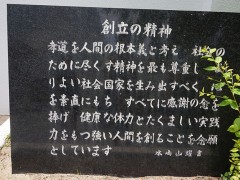 創立の精神
孝道を人間の根本義と考え 社会の
ために尽くす精神を最も尊重し
りよい社会国家を生み出すべく
を素直にもち すべてに感謝の念を
捧げ 健康な体力とたくましい実践
力をもつ強い人間を創ることを念願
としています